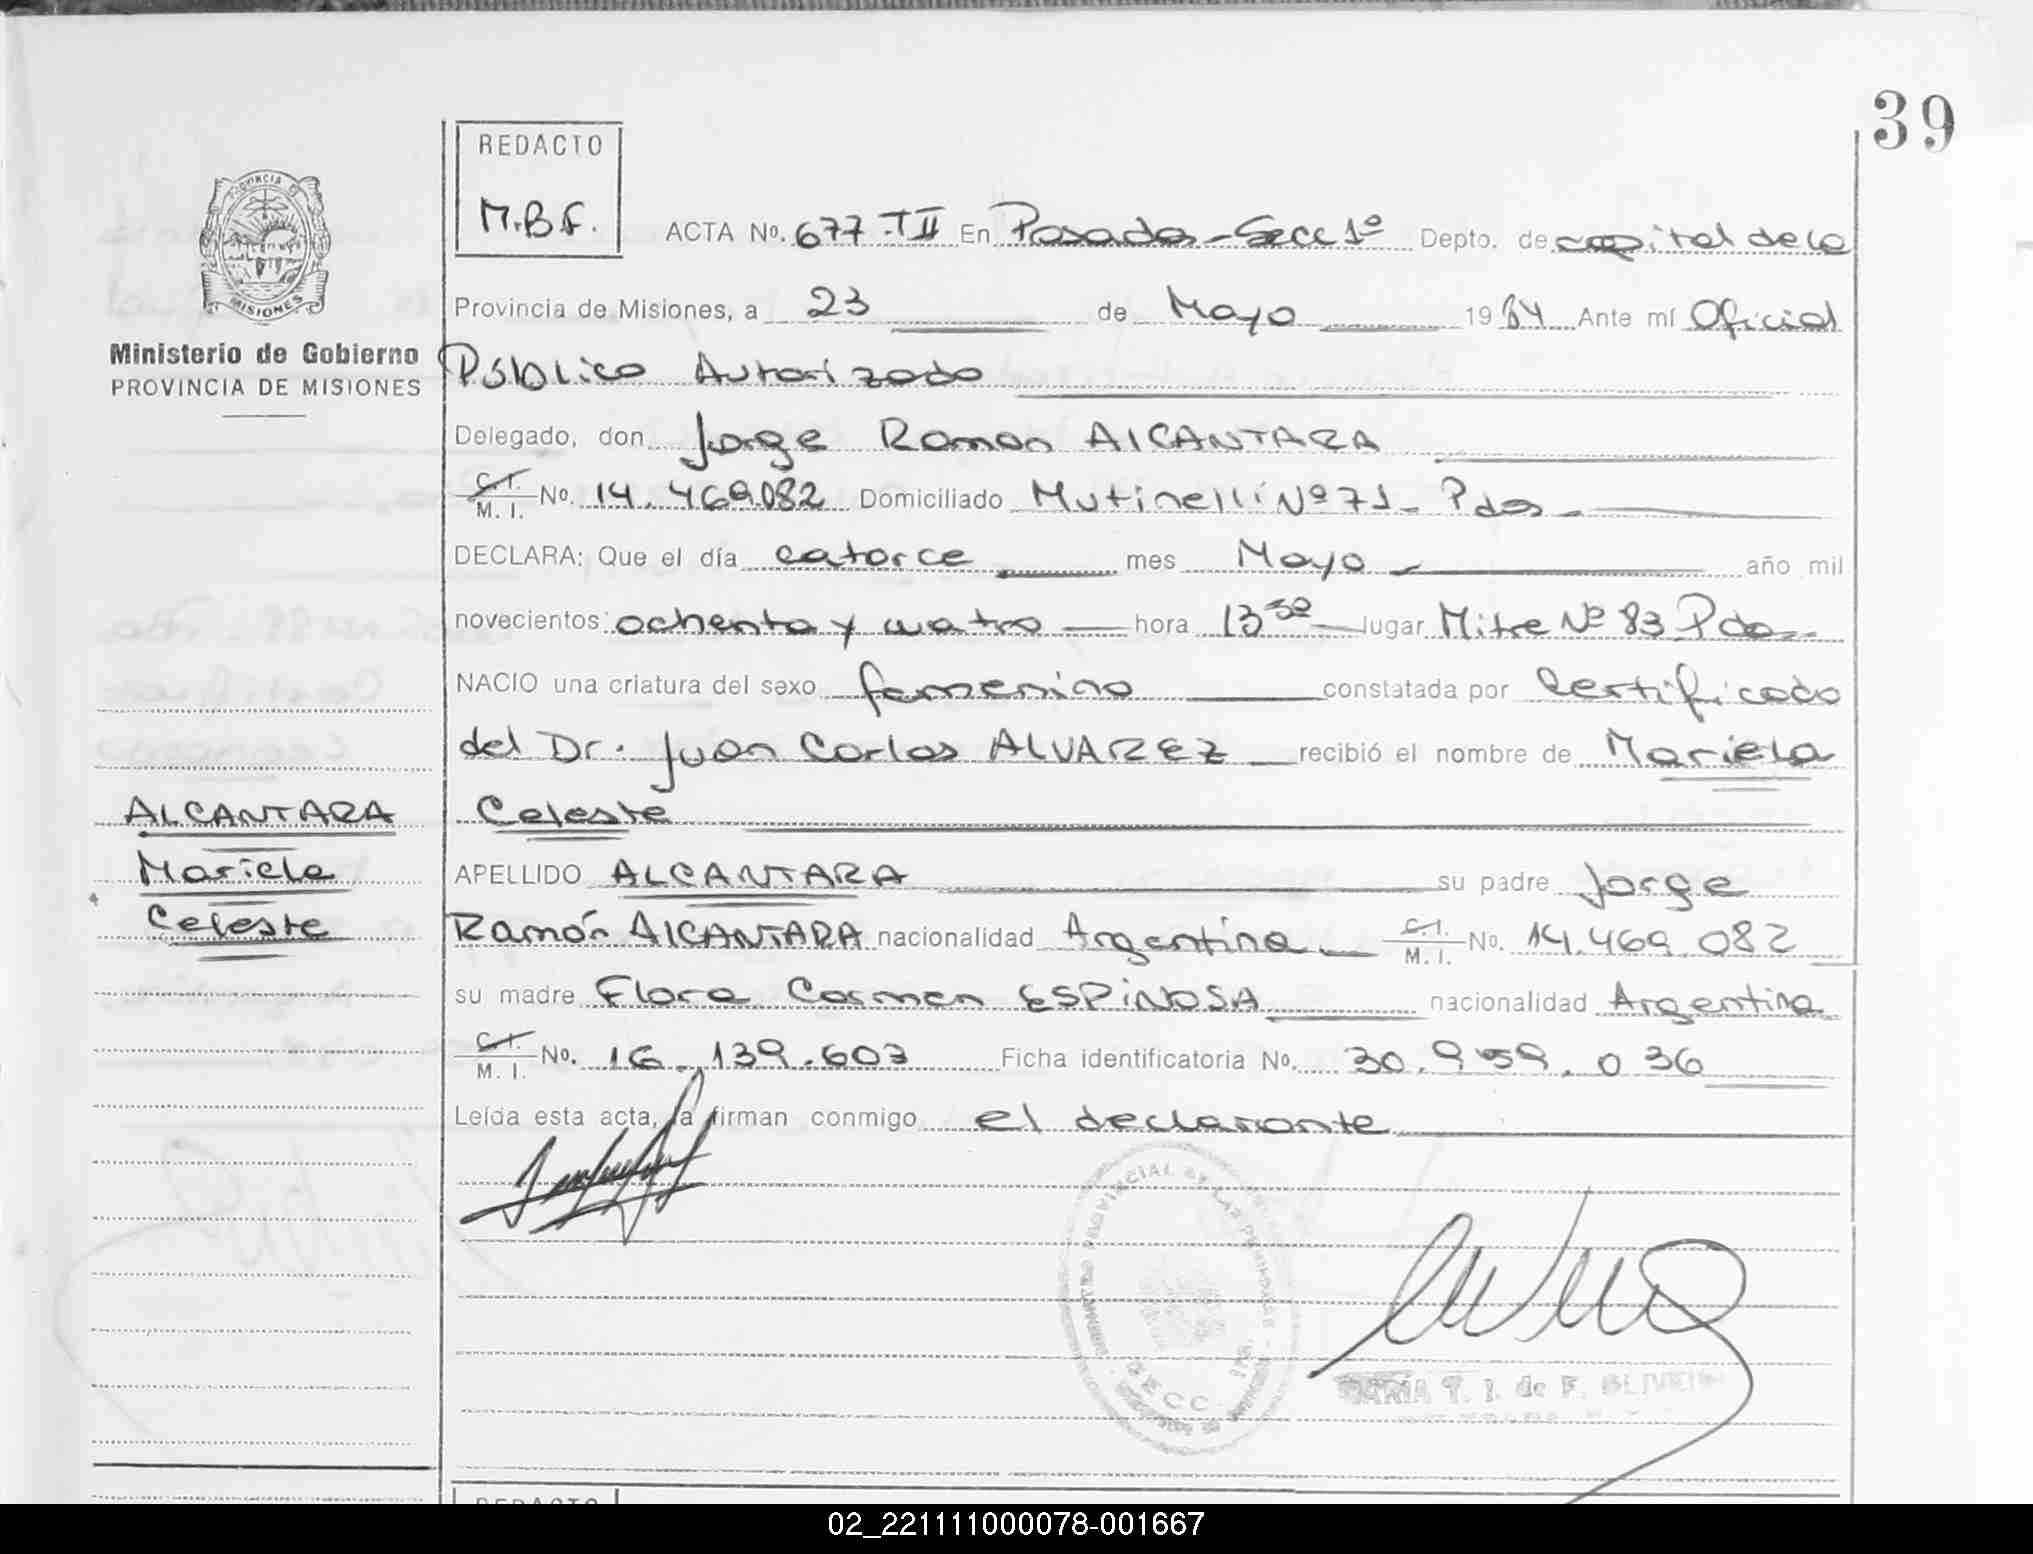 39
REDACTO
M.B.F.
PROVINCIA DE
MISIONES
Ministerio de Gobierno
PROVINCIA DE MISIONES
ACTA Nº. 677-TII En Posadas-Secc 1º Depto. de capital de la
Provincia de Misiones, a 23 de Mayo 1984 Ante mí Oficial
Público Autorizado
Delegado, don Jorge Ramon AlCANTARA
C.I. M. I. Nº. 14.469.082 Domiciliado Mutinelli Nº 71- Pdas-
DECLARA: Que el día catorce mes Mayo año mil
novecientos ochenta y cuatro hora 13 30 lugar Mitre Nº 83 Pdas
NACIO una criatura del sexo femenino constatada por Certificado
del Dr. Juan Carlos ALVAREZ recibió el nombre de Mariela
Celeste
ALCANTARA
Mariela
Celeste
APELLIDO ALCANTARA su padre Jorge
Ramón AlCANTARA nacionalidad Argentina C.I. M. I. Nº. 14.469.082
su madre Flora Carmen ESPiNOSA nacionalidad Argentina
C.I. M. I. Nº. 16.139.603 Ficha identificatoria Nº. 30.959.036
Leída esta acta, la firman conmigo el declarante
PROVINCIAL DE LAS PERSONAS
SECC. 1ra.
MARIA T. I. de F.
REDACTO
02_221111000078-001667